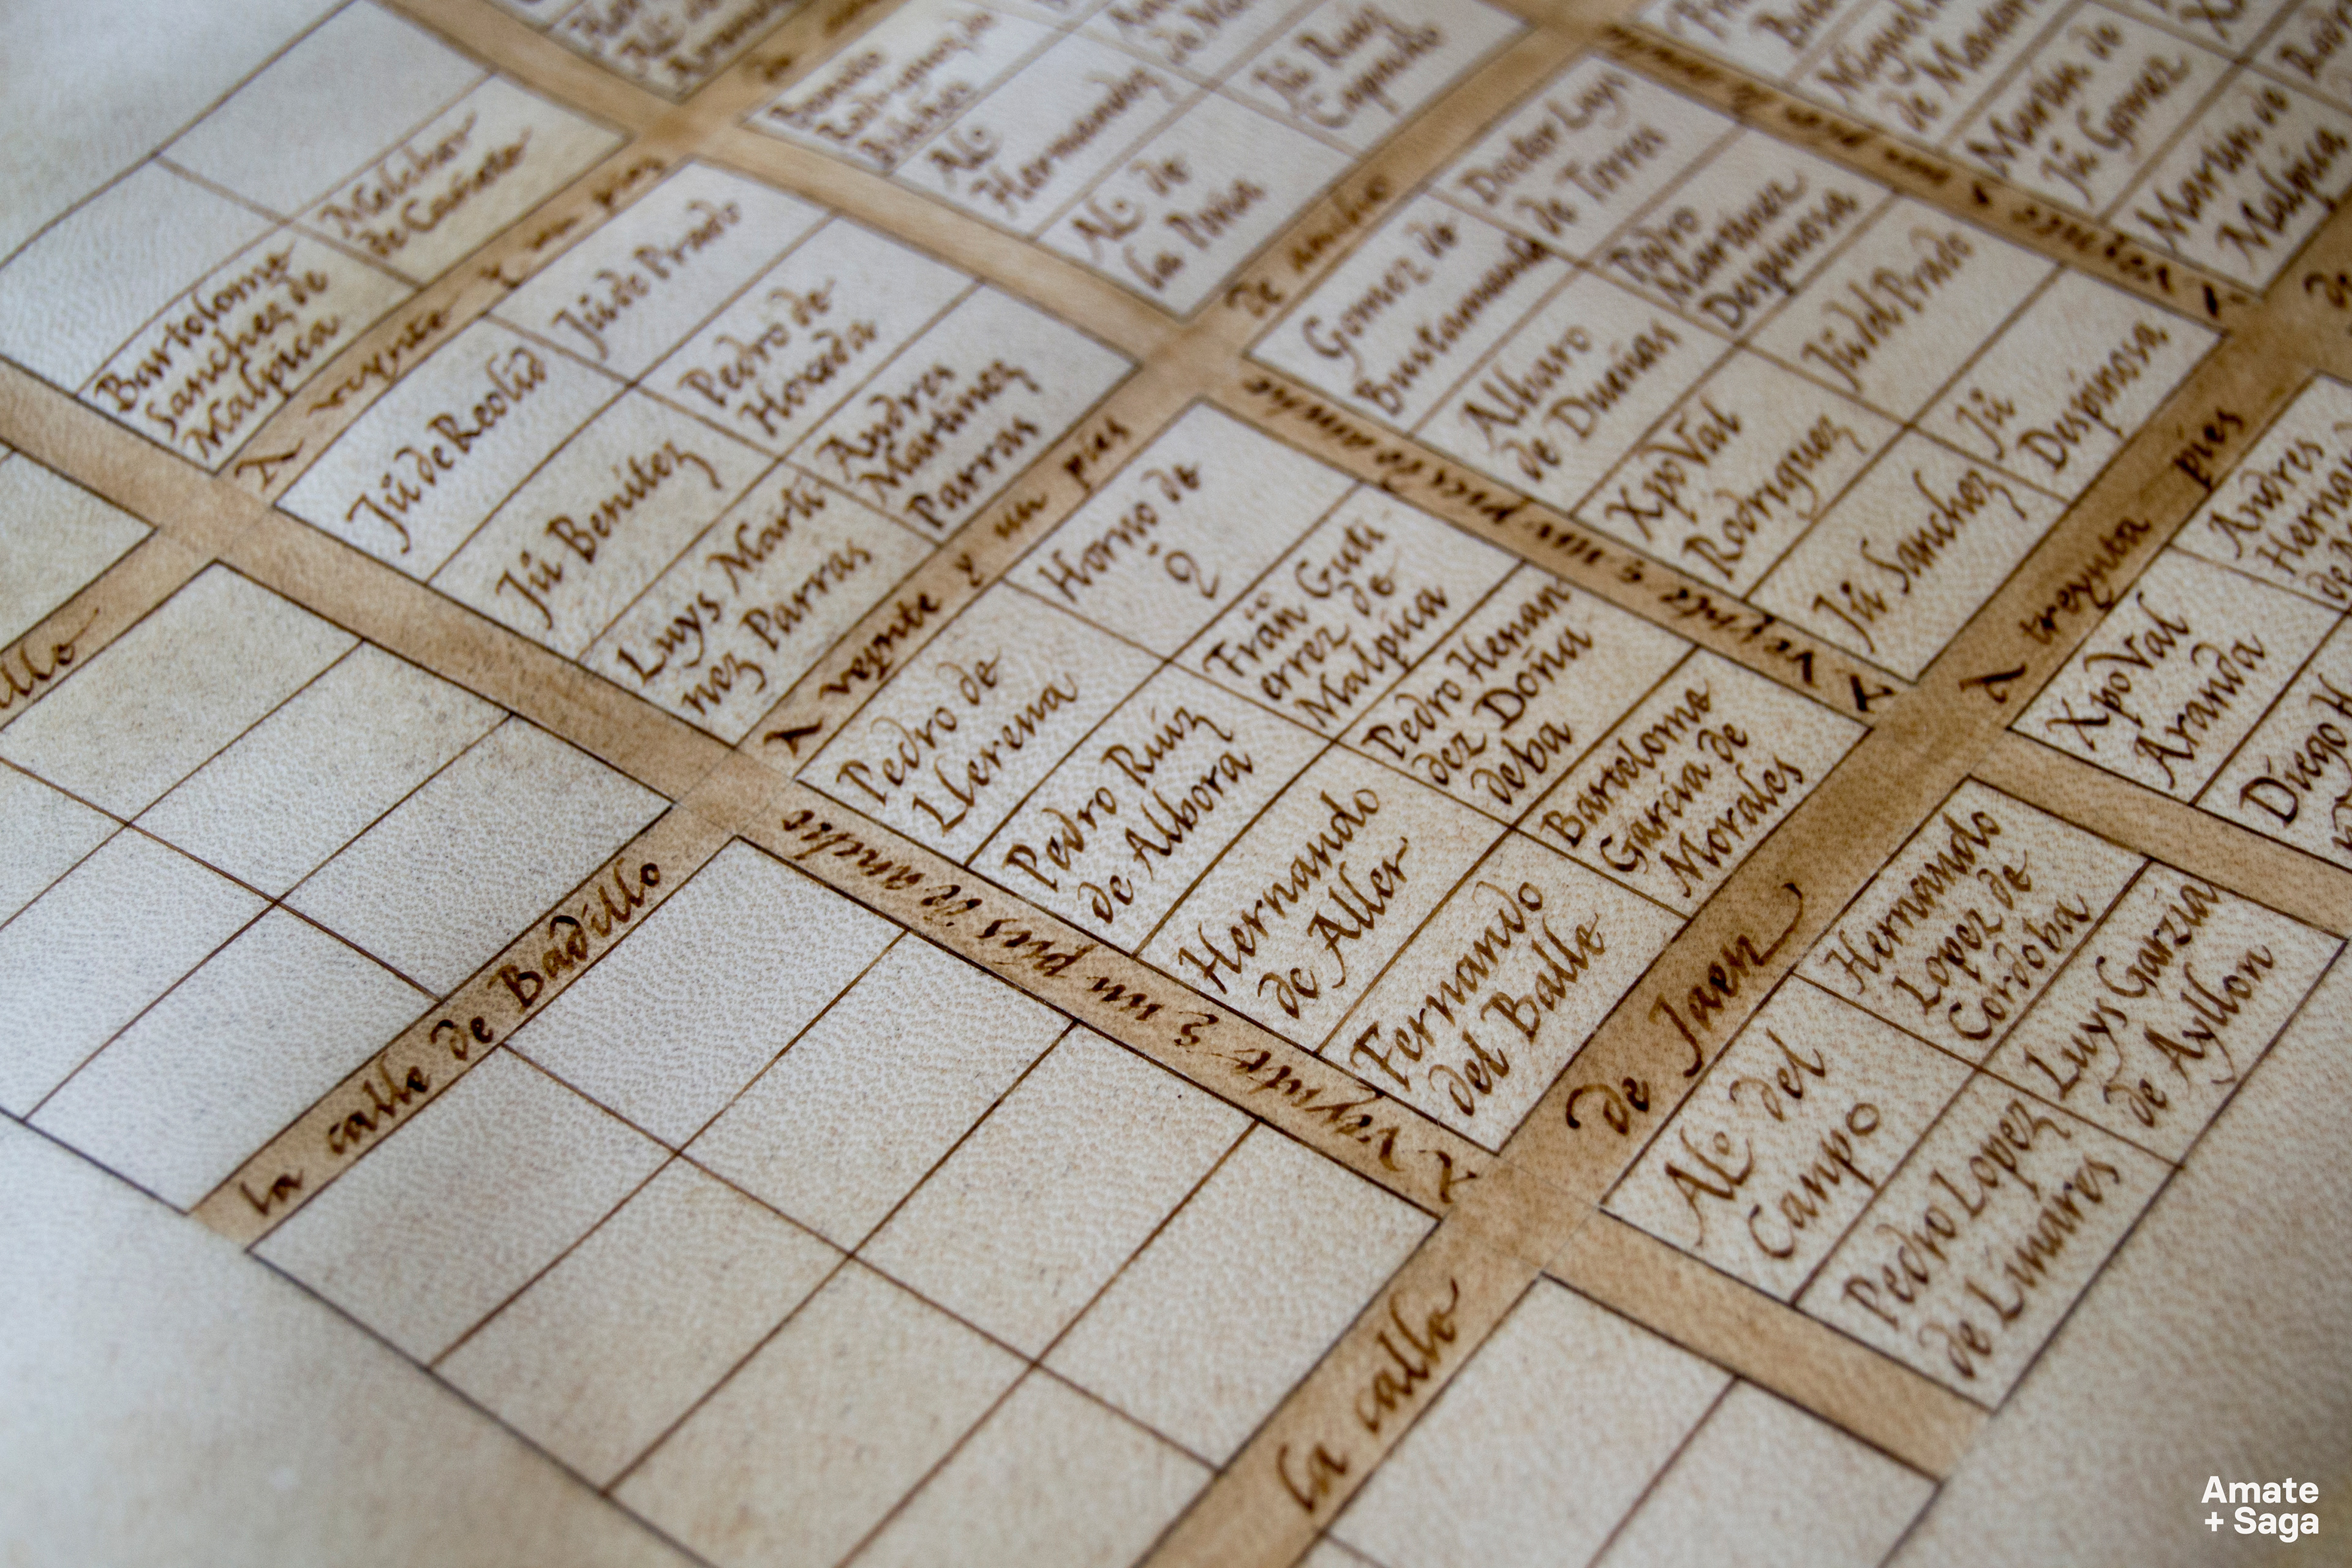 Doctor Luys
de Torra
Martin de
Jũ Gomez
Martin de
Malpica
Melchor
de Cañete
Bartolome
Sanchez de
Malpica
A veynte y un pies
Jũ de Prado
Jũ de Reolid
Pedro de
Horada
Jũ Benitez
Andres
Martinez
Parras
Luys Marti
nez Parras
Aº
Hernandez
Aº de
la Peña
de ancho
Gomez de
Bustamante
Pedro
Martinez
Despinosa
Alvaro
de Dueñas
Jũ del Prado
XpoVal
Rodriguez
Jũ
Despinosa
Jũ Sanchez
A veynte e un pies de anche
A veynte y un pies
Horno de
Pedro de
Llerena
Frãn Guti
errez de
Malpica
Pedro Ruiz
de Albora
Pedro Hernan
dez Doña
deba
Hernando
de Aller
Bartolome
Garcia de
Morales
Fernando
del Balle
A treynta pies
Andres
XpoVal
Aranda
Diego
A veynte e un pies de anche
la calle de Badillo
la calle
de Jaen
Hernando
Lopez de
Cordoba
Alº del
Campo
Luys Garzia
de Ayllon
Pedro Lopez
de Linares
Amate
+ Saga